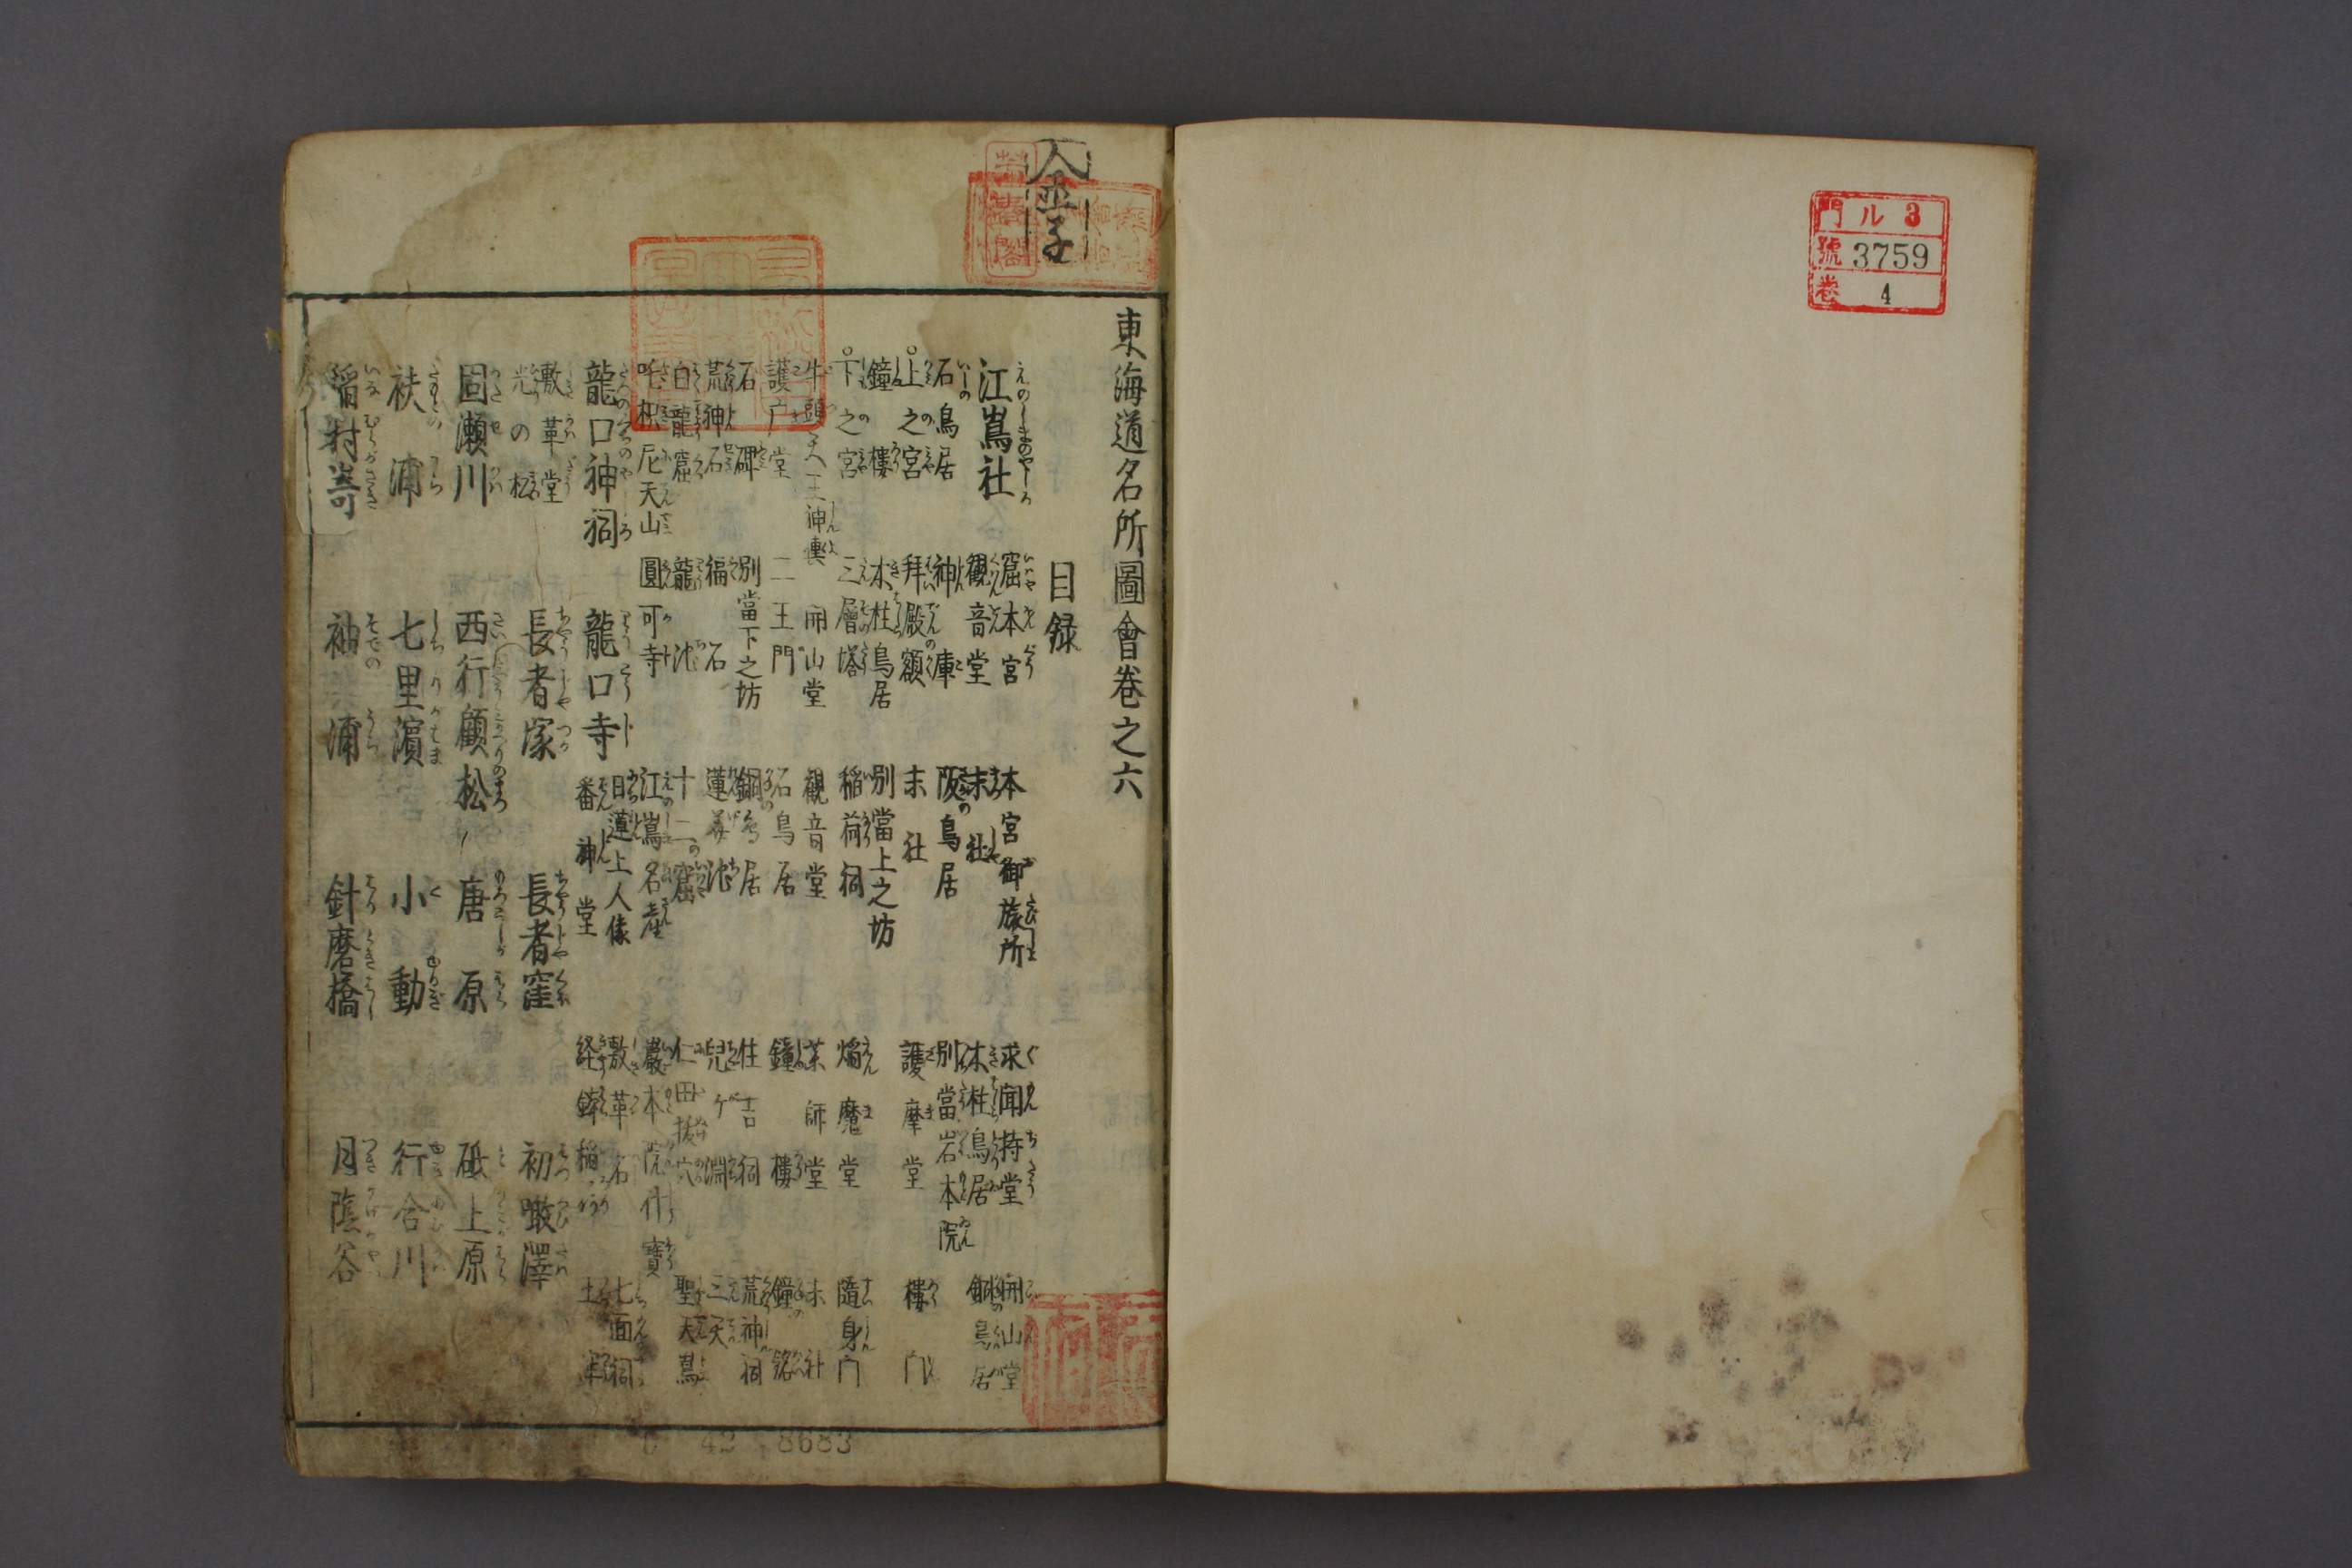 門 ル 3
號 3759
卷 4
東海道名所圖會卷之六
目録
江嶌社 窟本宮 本宮御旅所 求聞持堂 開山堂
石鳥居 觀音堂 末社 木柱鳥居 銅鳥居
神庫 阪鳥居 別當岩本院
○上之宮 拜殿額 末社 護摩堂 樓門
鐘樓 木柱鳥居 別當上之坊
○下之宮 三層塔 稲荷祠 焔魔堂 隨身门
牛頭天王神輿 開山堂 觀音堂 薬師堂 末社
護广堂 二王門 石鳥居 鐘樓 鐘銘
石碑 別當下之坊 銅鳥居 住吉祠 荒神祠
荒神石 福石 蓮華池 兒ケ淵 三天
白龍窟 龍池 十二の窟 仁田抜穴 聖天嶌
吒枳尼天山 圓可寺 江嶌名産 巖本院什寶
龍口神祠 龍口寺 日蓮上人像 敷革石 七面祠
番神堂 経錊稲 土牢
敷革堂 長者塚 長者窪 初噉澤
光の松
固瀬川 西行顧松 唐原 砥上原
袂浦 七里濵 小動 行合川
稲村嵜 袖浦 針磨橋 月蔭谷
42 8683